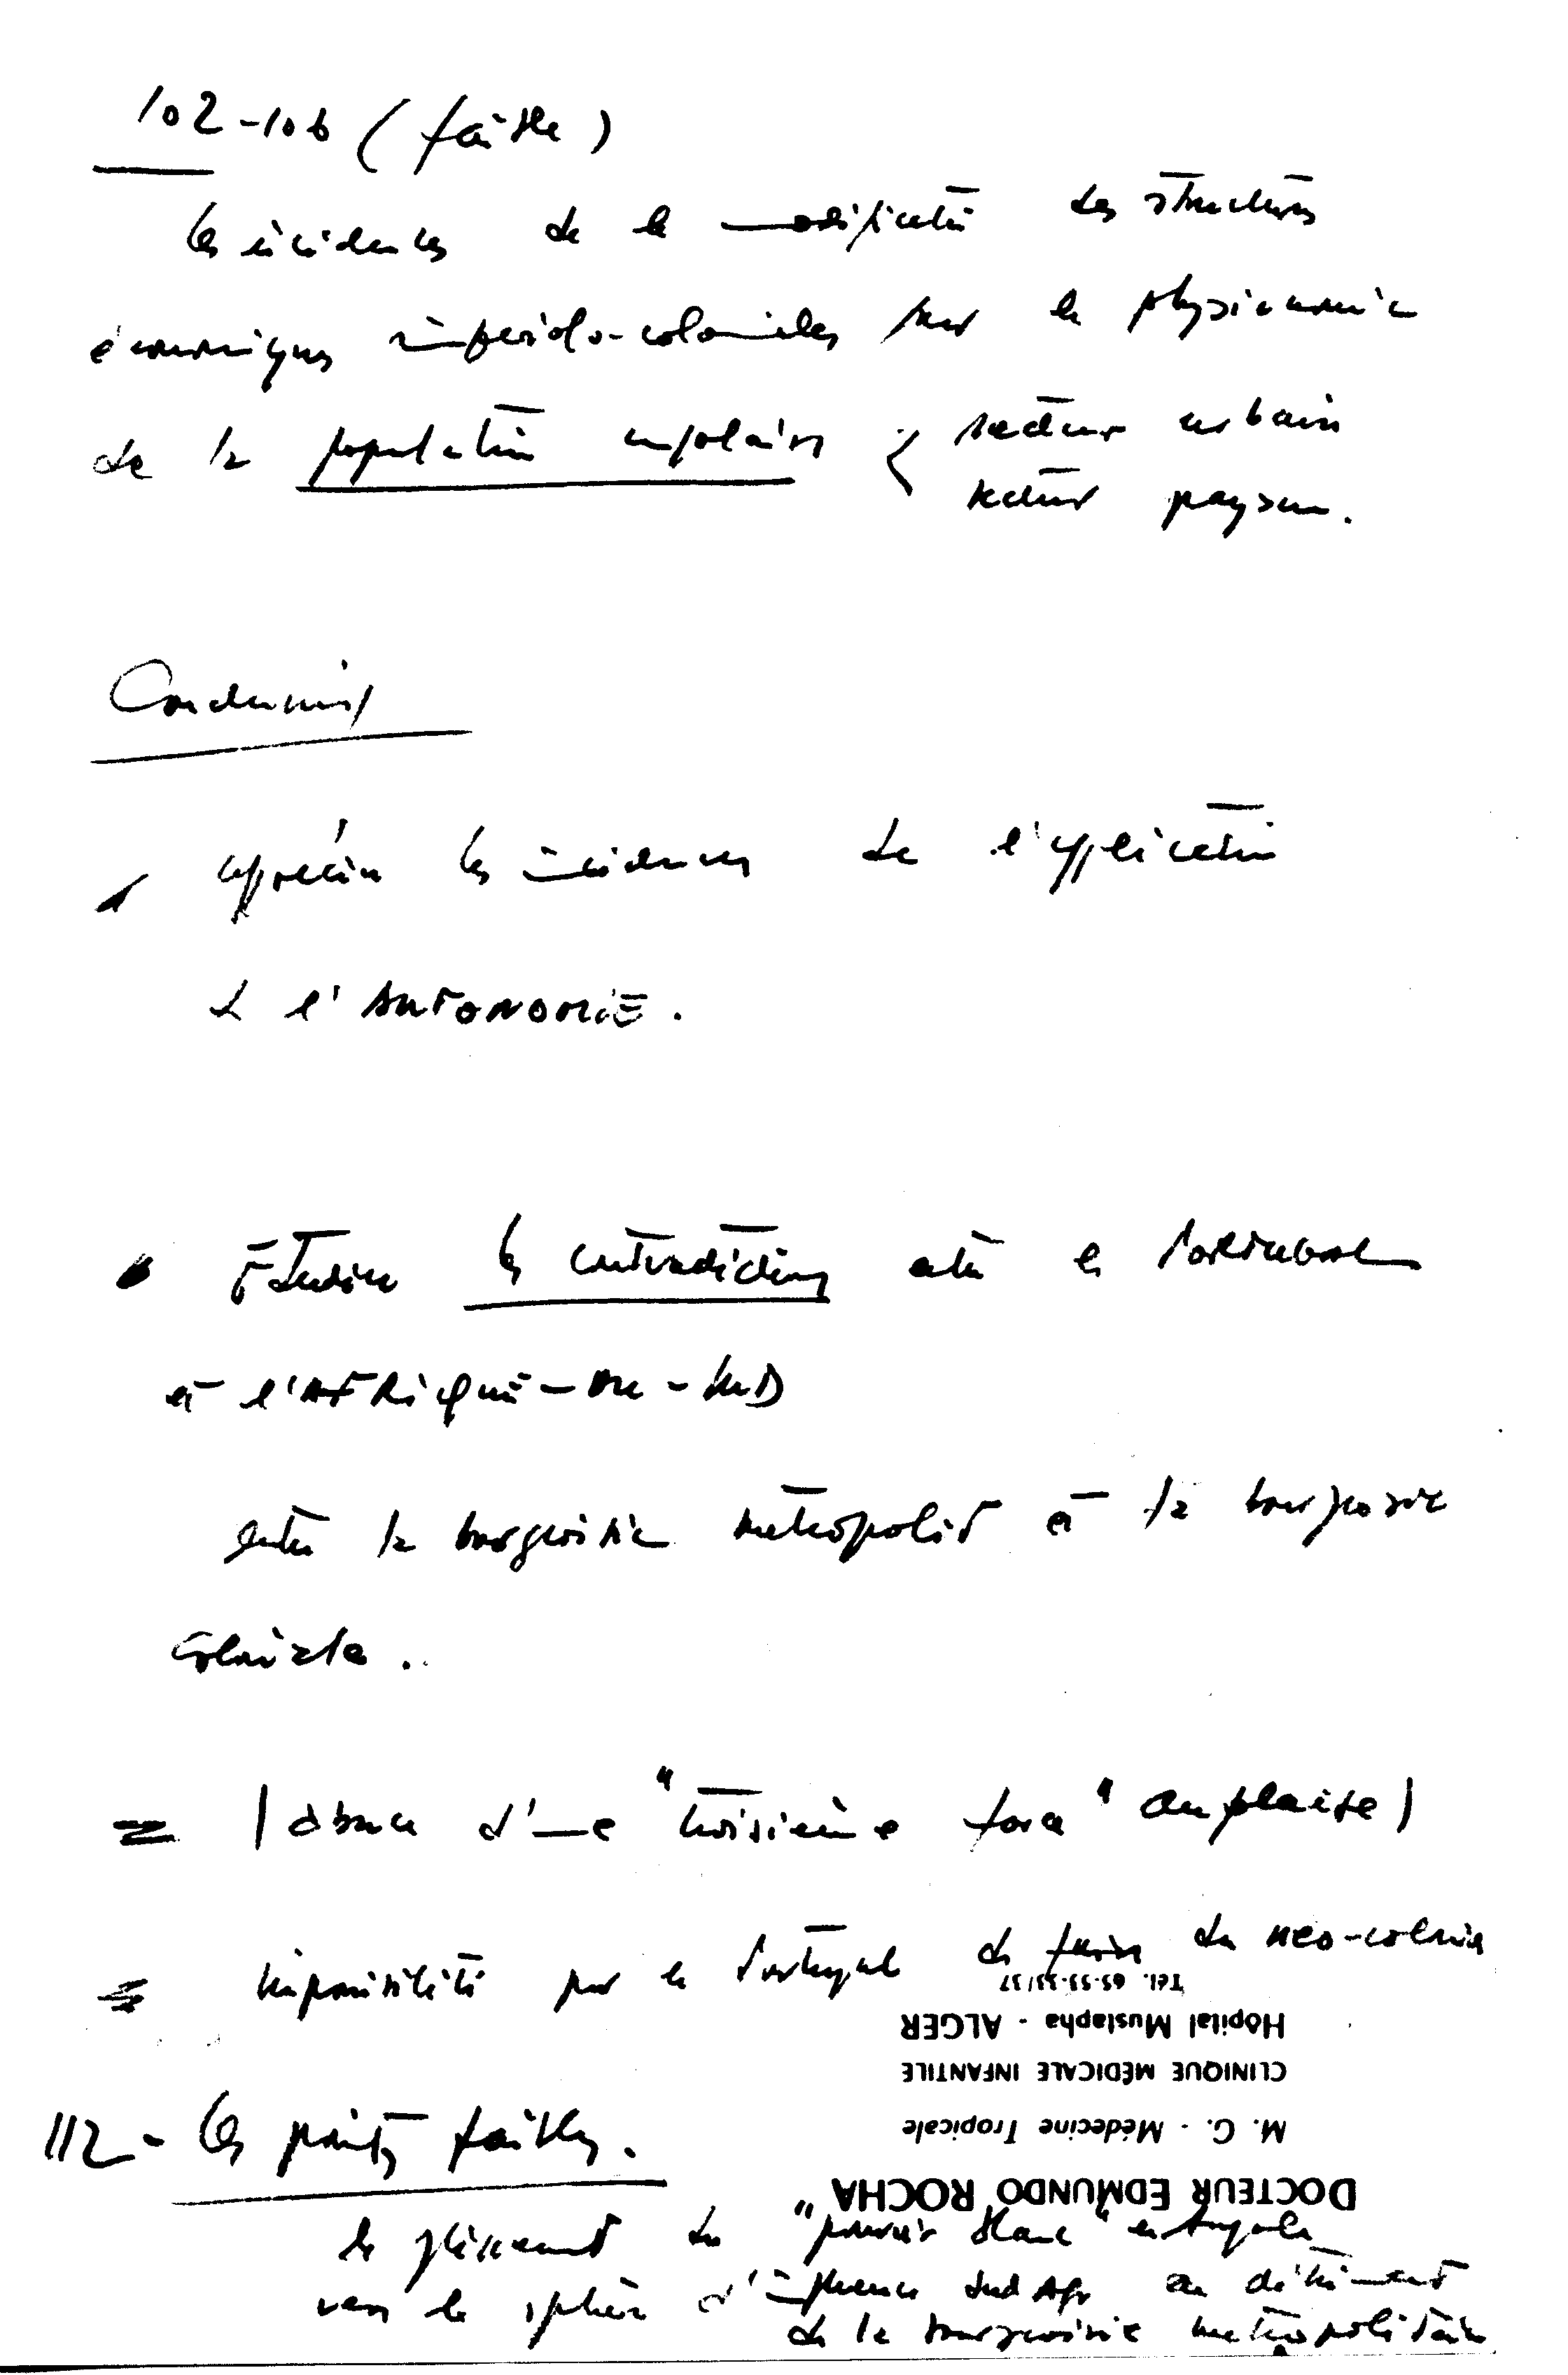 102-106 (faible)
les incidences de la modification des structures
économiques impérialo-coloniales sur la physionomie
de la population angolaise { secteur urbain
secteur paysan.
Conclusions
apprécier les incidences de l'application
de l'AUTONOMIE.
Étudier les contradictions entre le PORTUGAL
et l'AFRIQUE-DU-SUD
entre la bourgeoisie métropolit et la bourgeoisie
coloniale.
= (absence d'une "troisième force" angolaise)
= impossibilité pour le Portugal de faire du néo-colonia
112 - les points faibles.
le glissement du "pouvoir blanc" en Angola
vers la sphère d'influence Sud Afr au détriment
de la bourgeoisie métropolitaine
DOCTEUR EDMUNDO ROCHA
M. G. - Médecine Tropicale
CLINIQUE MÉDICALE INFANTILE
Hôpital Mustapha - ALGER
Tél. 65-55-33/37